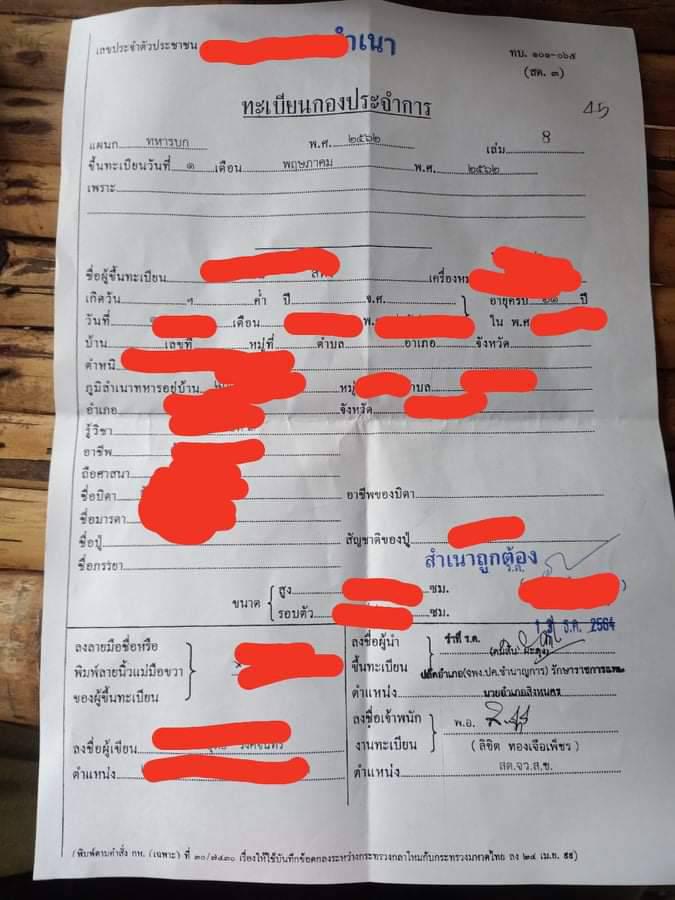 เลขประจำตัวประชาชน สำเนา ทบ. ๑๐๑-๐๖๕
(สด. ๓)
ทะเบียนกองประจำการ
45
แผนก ทหารบก พ.ศ. ๒๕๖๒ เล่ม 8
ขึ้นทะเบียนวันที่ ๑ เดือน พฤษภาคม พ.ศ. ๒๕๖๒
เพราะ
ชื่อผู้ขึ้นทะเบียน เครื่องหม
เกิดวัน ฯ ค่ำ ปี จ.ศ. อายุครบ ๒๑ ปี
วันที่ เดือน พ. ใน พ.ศ.
บ้าน เลขที่ หมู่ที่ ตำบล อำเภอ จังหวัด
ตำหนิ
ภูมิลำเนาทหารอยู่บ้าน หมู่ บล
อำเภอ จังหวัด
รู้วิชา
อาชีพ
ถือศาสนา
ชื่อบิดา อาชีพของบิดา
ชื่อมารดา
ชื่อปู่ สัญชาติของปู่
สำเนาถูกต้อง
ชื่อภรรยา ร.ต.
ขนาด สูง ซม.
รอบตัว ซม.
ธ.ค. 2564
ลงลายมือชื่อหรือ
พิมพ์ลายนิ้วแม่มือขวา
ของผู้ขึ้นทะเบียน
ลงชื่อผู้เขียน
ตำแหน่ง
ลงชื่อผู้นำ ว่าที่ ร.ต.
ขึ้นทะเบียน ปลัดอำเภอ(จพง.ปค.ชำนาญการ) รักษาราชการแทน
ตำแหน่ง นายอำเภอสิงหนคร
ลงชื่อเจ้าพนัก พ.อ.
งานทะเบียน (ลิขิต ทองเจือเพชร)
ตำแหน่ง สด.จว.ส.ข.
(พิมพ์ตามคำสั่ง กห. (เฉพาะ) ที่ ๓๐/๗๔๓๐ เรื่องให้ใช้บันทึกข้อตกลงระหว่างกระทรวงกลาโหมกับกระทรวงมหาดไทย ลง ๒๔ เม.ย. ๕๕)